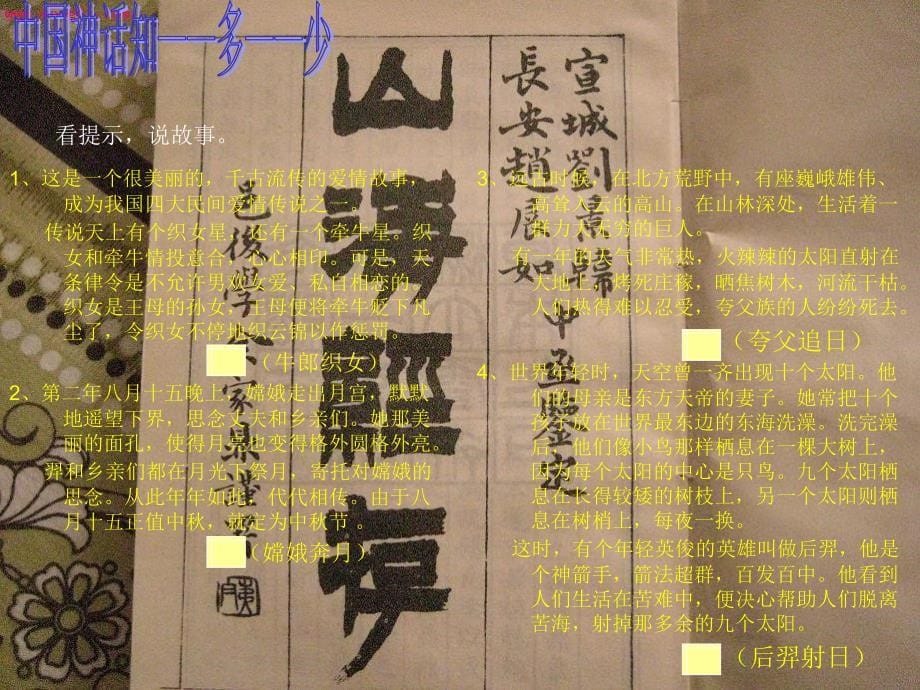 中国神话知——多——少
看提示，说故事。
1、这是一个很美丽的，千古流传的爱情故事，
成为我国四大民间爱情传说之一。
传说天上有个织女星，还有一个牵牛星。织
女和牵牛情投意合，心心相印。可是，天
条律令是不允许男欢女爱、私自相恋的。
织女是王母的孙女，王母便将牵牛贬下凡
尘了，令织女不停地织云锦以作惩罚。
（牛郎织女）
2、第二年八月十五晚上，嫦娥走出月宫，默默
地遥望下界，思念丈夫和乡亲们。她那美
丽的面孔，使得月亮也变得格外圆格外亮。
羿和乡亲们都在月光下祭月，寄托对嫦娥的
思念。从此年年如此，代代相传。由于八
月十五正值中秋，就定为中秋节 。
（嫦娥奔月）
3、远古时候，在北方荒野中，有座巍峨雄伟、
高耸入云的高山。在山林深处，生活着一
群力大无穷的巨人。
有一年的天气非常热，火辣辣的太阳直射在
大地上，烤死庄稼，晒焦树木，河流干枯。
人们热得难以忍受，夸父族的人纷纷死去。
（夸父追日）
4、世界年轻时，天空曾一齐出现十个太阳。他
们的母亲是东方天帝的妻子。她常把十个
孩子放在世界最东边的东海洗澡。洗完澡
后，他们像小鸟那样栖息在一棵大树上，
因为每个太阳的中心是只鸟。九个太阳栖
息在长得较矮的树枝上，另一个太阳则栖
息在树梢上，每夜一换。
这时，有个年轻英俊的英雄叫做后羿，他是
个神箭手，箭法超群，百发百中。他看到
人们生活在苦难中，便决心帮助人们脱离
苦海，射掉那多余的九个太阳。
（后羿射日）
宣城劉
長安趙展如
山海經存
邑後學